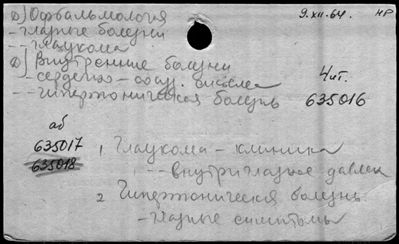 D) Офтальмология 9.XII.64. НР
- глазные болезни
-- глаукома
D) Внутренние болезни
- сердечно-сосуд. система 4 шт.
-- гипертоническая болезнь 635016
аб
635017 1 Глаукома - клиника
635018 -- внутриглазное давлен
2 Гипертоническая болезнь
- глазные симптомы